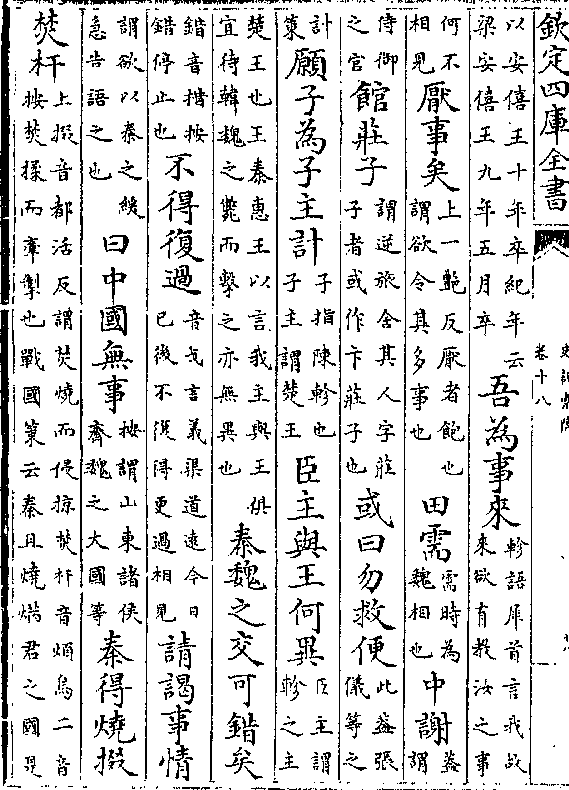 欽定四庫全書
卷十八
以安僖王十年卒紀年云
梁安僖王九年五月卒
吾為事來
軫語犀首言我故
來欲有教汝之事
何不
相見
厭事矣
上一艶反厭者飽也
謂欲令其多事也
田需
需時為
魏相也
中謝
蓋
謂
侍御
之官
館莊子
謂逆旅舍其人字莊
子者或作卞莊子也
或曰勿救便
此蓋張
儀等之
計
策
願子為子主計
子指陳軫也
子主謂楚王
臣主與王何異
臣主謂
軫之主
楚王也王秦惠王以言我主與王俱
宜待韓魏之斃而擊之亦無異也
秦魏之交可錯矣
錯音措按
錯停止也
不得復過
音戈言義渠道遠今日
已後不復得更過相見
請謁事情
謂欲以秦之緩
急告語之也
曰中國無事
按謂山東諸侯
齊魏之大國等
秦得燒掇
焚杅
上掇音都活反謂焚燒而侵掠焚杅音煩烏二音
按焚揉而牽掣也戰國策云秦且燒焫君之國是